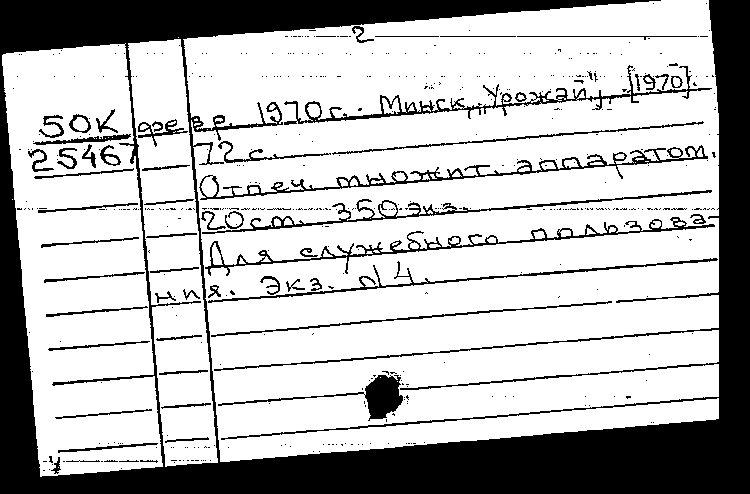 2
50К февр. 1970 г. Минск, „Урожай“, [1970].
25467 72 с.
Отпеч. множит. аппаратом.
20 см. 350 экз.
Для служебного пользова-
ния. Экз. №4.
у